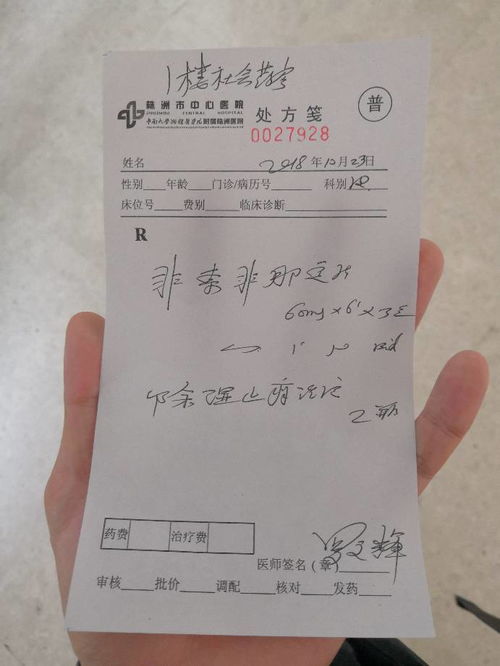 1楼社会药房
株洲市中心医院
ZHUZHOU CENTRAL HOSPITAL
中南大学湘雅医学院附属株洲医院
处方笺
普
0027928
姓名 2018年10月23日
性别 年龄 门诊/病历号 科别
床位号 费别 临床诊断
R
非索非那定片
60mg×6'×3盒
1' po bid
除湿止痒洗液
2瓶
药费 治疗费
医师签名(章)
审核 批价 调配 核对 发药